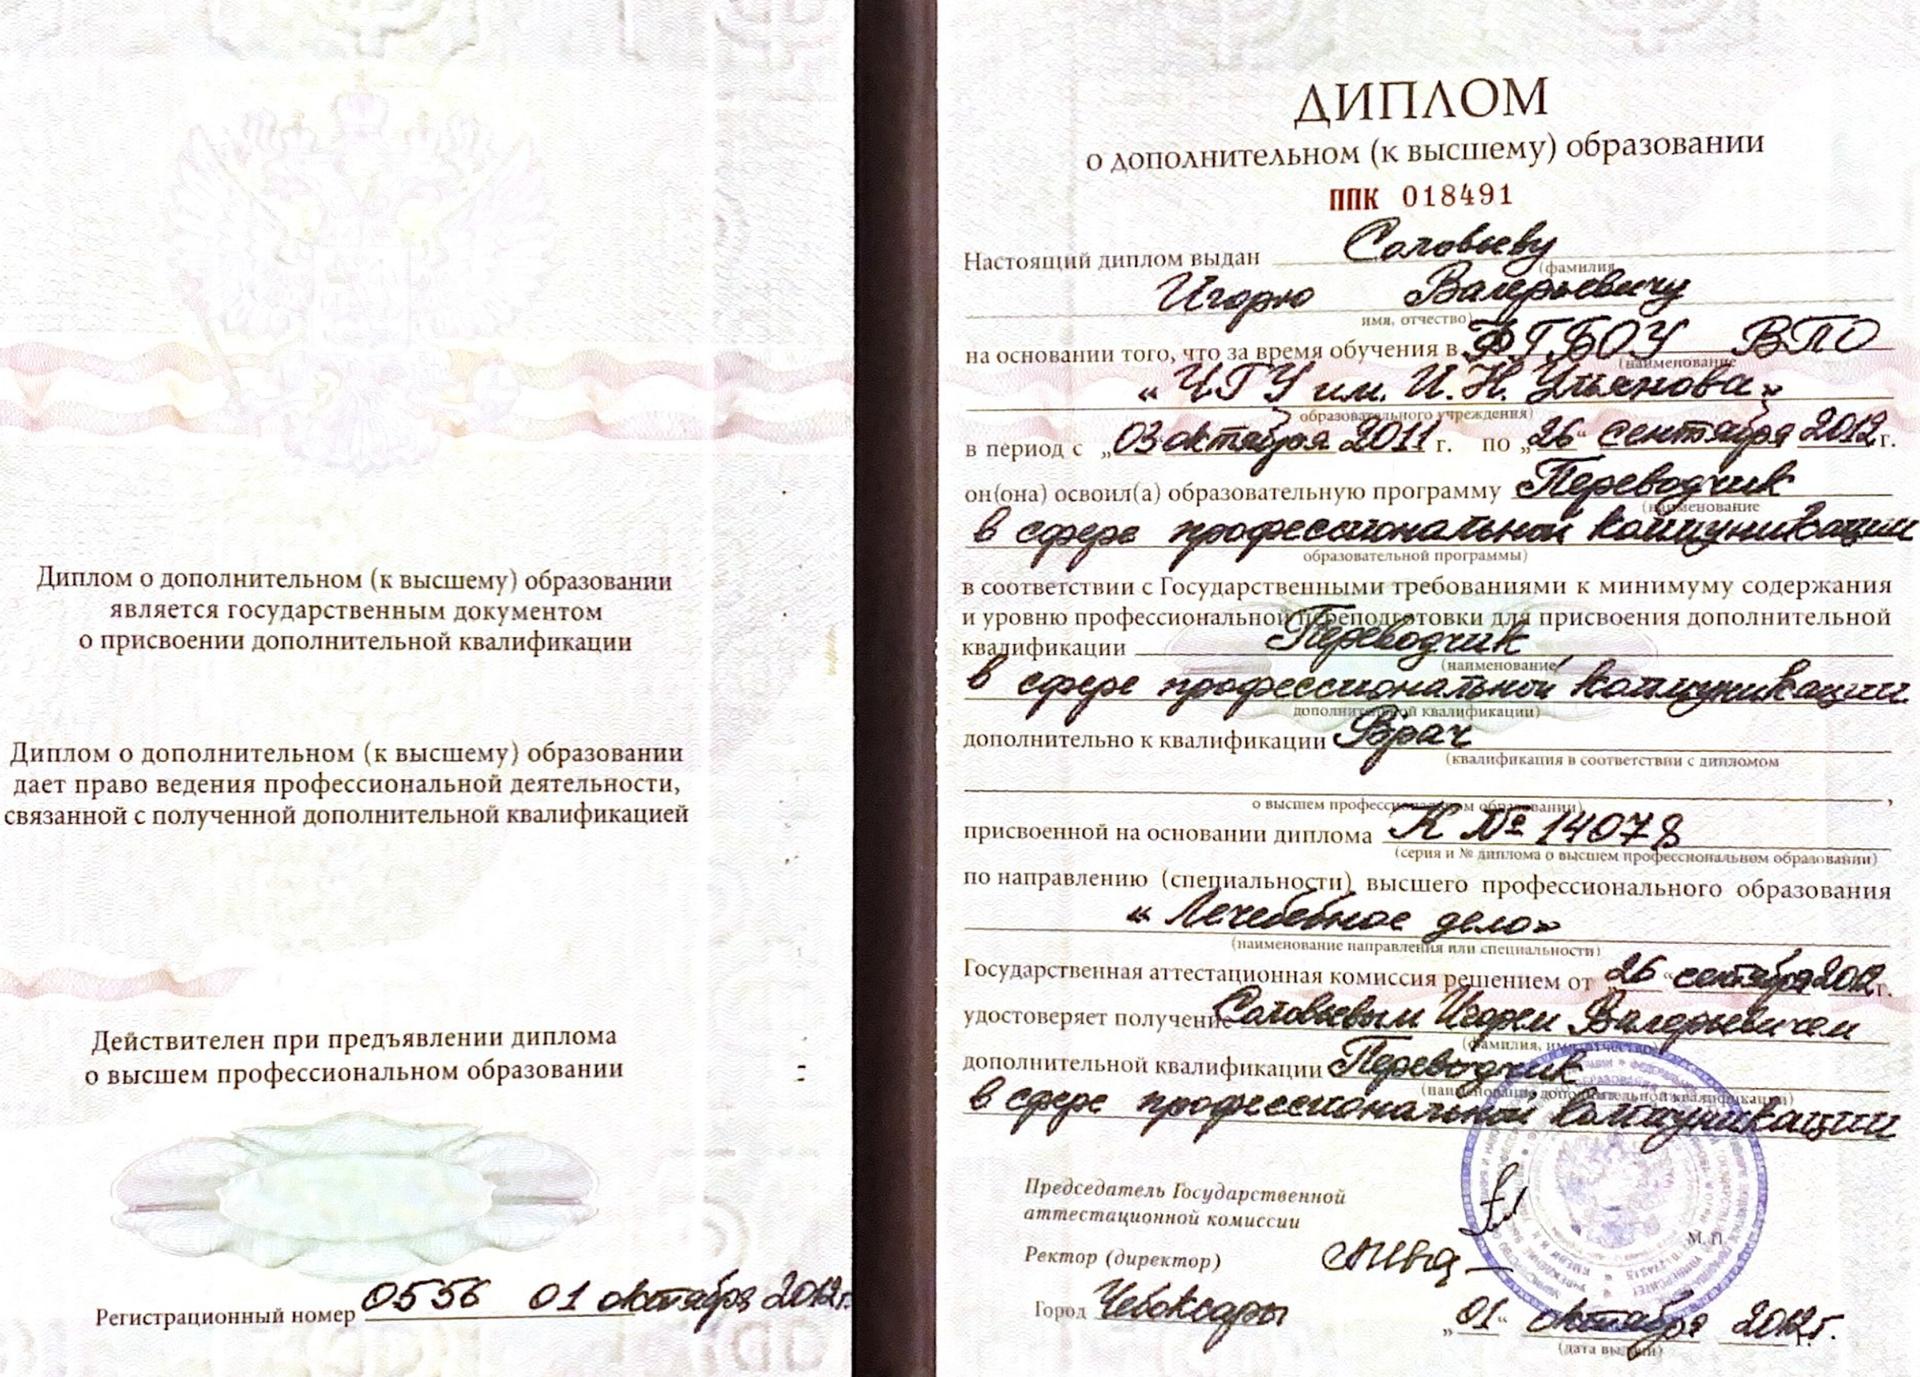 Диплом о дополнительном (к высшему) образовании
является государственным документом
о присвоении дополнительной квалификации
Диплом о дополнительном (к высшему) образовании
дает право ведения профессиональной деятельности,
связанной с полученной дополнительной квалификацией
Действителен при предъявлении диплома
о высшем профессиональном образовании
Регистрационный номер 0556 01 октября 2012г.
ДИПЛОМ
о дополнительном (к высшему) образовании
ППК 018491
Настоящий диплом выдан Соловьеву
(фамилия,
Игорю Валерьевичу
имя, отчество)
на основании того, что за время обучения в ФГБОУ ВПО
(наименование
«ЧГУ им. И.Н. Ульянова»
образовательного учреждения)
в период с „03“ октября 2011 г. по „26“ сентября 2012 г.
он(она) освоил(а) образовательную программу Переводчик
(наименование
в сфере профессиональной коммуникации
образовательной программы)
в соответствии с Государственными требованиями к минимуму содержания
и уровню профессиональной переподготовки для присвоения дополнительной
квалификации Переводчик
(наименование
в сфере профессиональной коммуникации
дополнительной квалификации)
дополнительно к квалификации Врач
(квалификация в соответствии с дипломом
,
о высшем профессиональном образовании)
присвоенной на основании диплома К № 14078
(серия и № диплома о высшем профессиональном образовании)
по направлению (специальности) высшего профессионального образования
«Лечебное дело»
(наименование направления или специальности)
Государственная аттестационная комиссия решением от „26“ сентября 2012 г.
удостоверяет получение Соловьевым Игорем Валерьевичем
(фамилия, имя, отчество)
дополнительной квалификации Переводчик
(наименование дополнительной квалификации)
в сфере профессиональной коммуникации
Председатель Государственной
аттестационной комиссии
М. П.
Ректор (директор)
Город Чебоксары „01“ октября 2012г.
(дата выдачи)